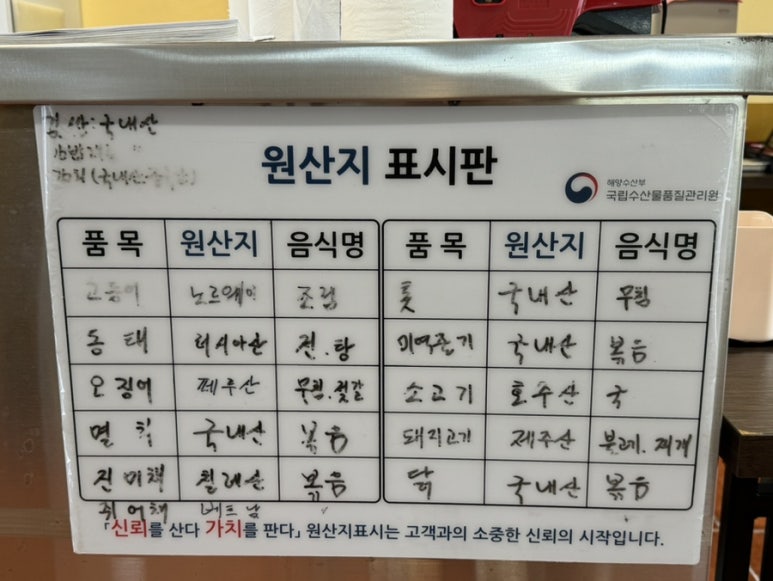 김 쌀: 국내산
원산지 표시판
해양수산부
국립수산물품질관리원
품목 원산지 음식명 품목 원산지 음식명
고등어 노르웨이 조림 톳 국내산 무침
동태 러시아산 전.탕 미역줄기 국내산 볶음
오징어 페루산 무침.젓갈 소고기 호주산 국
멸치 국내산 볶음 돼지고기 제주산 찌개
진미채 칠레산 볶음 닭 국내산 볶음
쥐어채 베트남
「신뢰를 산다 가치를 판다」 원산지표시는 고객과의 소중한 신뢰의 시작입니다.